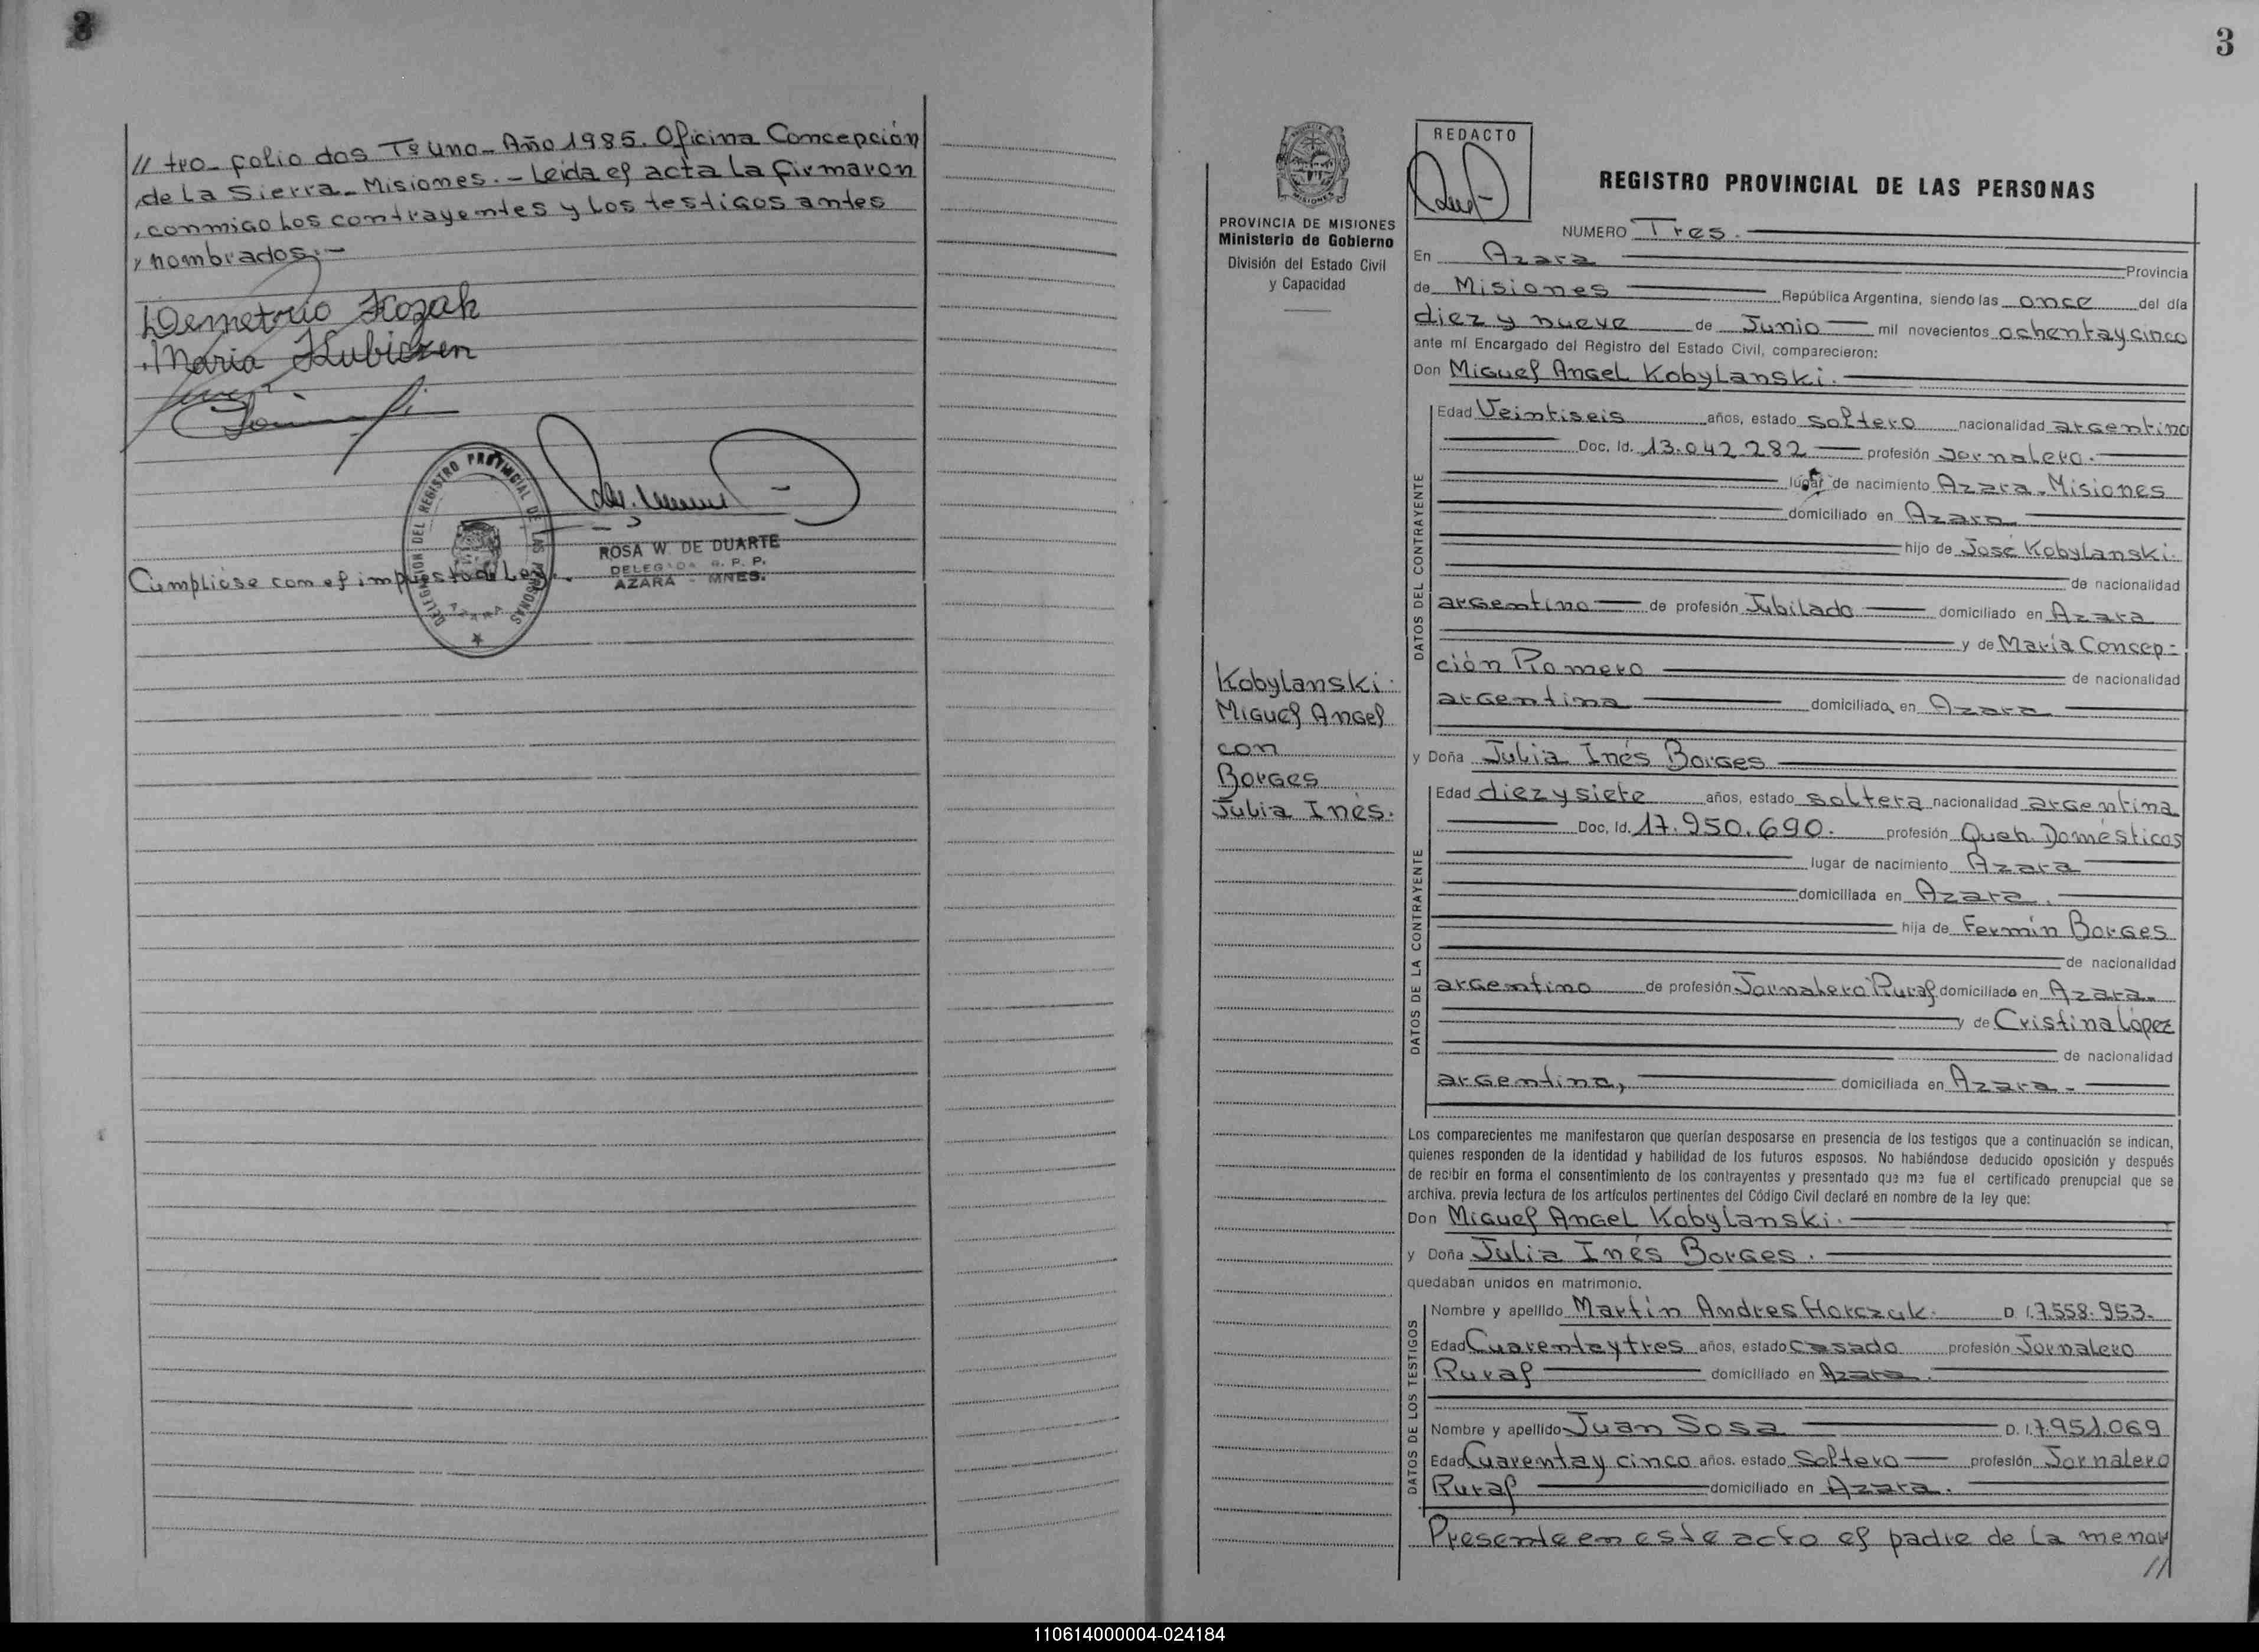 // tro- folio dos Tº uno- Año 1985. Oficina Concepción
de La Sierra- Misiones.- Leída el acta La firmaron
conmigo Los contrayentes y Los testigos antes
nombrados.-
Demetrio Kozak
Maria Kubiszen
DELEGACION DEL REGISTRO PROVINCIAL DE LAS PERSONAS
AZARA
ROSA W. DE DUARTE
DELEGADA R. P. P.
AZARA - MNES.
Cumplióse con el impuesto de Ley.
3
PROVINCIA DE MISIONES
Ministerio de Gobierno
División del Estado Civil
y Capacidad
Kobylanski
Miguel Angel
con
Borges
Julia Inés.
REDACTO
REGISTRO PROVINCIAL DE LAS PERSONAS
NUMERO Tres.
En Azara Provincia
de Misiones República Argentina, siendo las once del día
diez y nueve de Junio mil novecientos ochenta y cinco
ante mí Encargado del Registro del Estado Civil, comparecieron:
Don Miguel Angel Kobylanski.
DATOS DEL CONTRAYENTE
Edad Veintiseis años, estado soltero nacionalidad argentino
Doc. Id. 13.042.282 profesión Jornalero.
lugar de nacimiento Azara-Misiones
domiciliado en Azara
hijo de José Kobylanski.
de nacionalidad
argentino de profesión Jubilado domiciliado en Azara
y de María Concep-
ción Romero de nacionalidad
argentina domiciliada en Azara
y Doña Julia Inés Borges
DATOS DE LA CONTRAYENTE
Edad diez y siete años, estado soltera nacionalidad argentina
Doc. Id. 17.950.690. profesión Queh. Domésticos
lugar de nacimiento Azara
domiciliada en Azara.
hija de Fermín Borges
de nacionalidad
argentino de profesión Jornalero Rural domiciliado en Azara.
y de Cristina López
de nacionalidad
argentina, domiciliada en Azara.-
Los comparecientes me manifestaron que querían desposarse en presencia de los testigos que a continuación se indican,
quienes responden de la identidad y habilidad de los futuros esposos. No habiéndose deducido oposición y después
de recibir en forma el consentimiento de los contrayentes y presentado que me fue el certificado prenupcial que se
archiva, previa lectura de los artículos pertinentes del Código Civil declaré en nombre de la ley que:
Don Miguel Angel Kobylanski.
y Doña Julia Inés Borges.
quedaban unidos en matrimonio.
DATOS DE LOS TESTIGOS
Nombre y apellido Martín Andres Horczuk. D. I. 7.558.953.
Edad Cuarenta y tres años, estado casado profesión Jornalero
Rural domiciliado en Azara.
Nombre y apellido Juan Sosa D. I. 7.951.069
Edad Cuarenta y cinco años, estado Soltero profesión Jornalero
Rural domiciliado en Azara.
Presente en este acto el padre de La menor
//
110614000004-024184